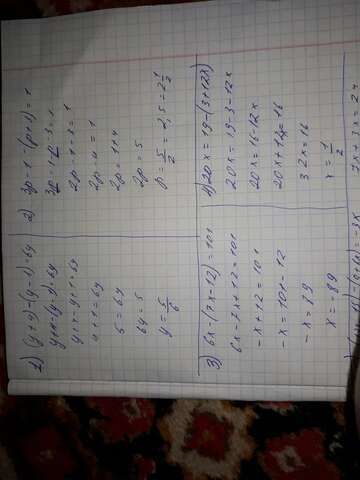 1) (y+4)-(y-1)=6y
y+4-(y-1)=6y
y+4-y+1=6y
4+1=6y
5=6y
6y=5
y=5/6
2) 3p-1-(p+3)=1
3p-1-p-3=1
2p-1-3=1
2p-4=1
2p=1+4
2p=5
p=5/2=2,5=2 1/2
3) 6x-(7x-12)=101
6x-7x+12=101
-x+12=101
-x=101-12
-x=89
x=-89
4) 20x=19-(3+12x)
20x=19-3-12x
20x=16-12x
20x+12x=16
32x=16
x=1/2